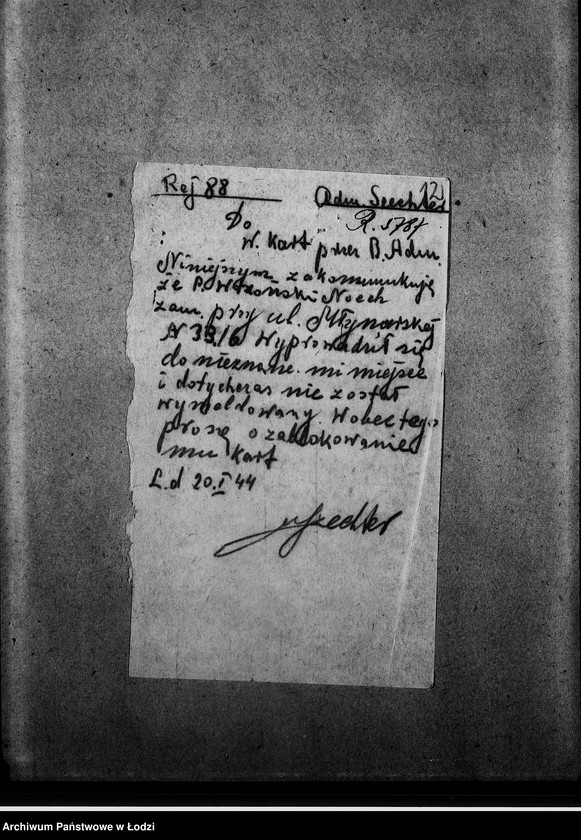 12
Rej 88 Adm. Szechter
R. 5787
Do
W. Kart przez B. Adm.
Niniejszym zakomunikuję
że P. Wrzoński Noech
zam. przy ul. Młynarskiej
N 33/6 Wyprowadził się
do nieznane. mi miejsce
i dotychczas nie został
wymeldowany. Wobec tego
proszę o zablokowanie
mu kart
L.d 20.I 44
Szechter
Archiwum Państwowe w Łodzi